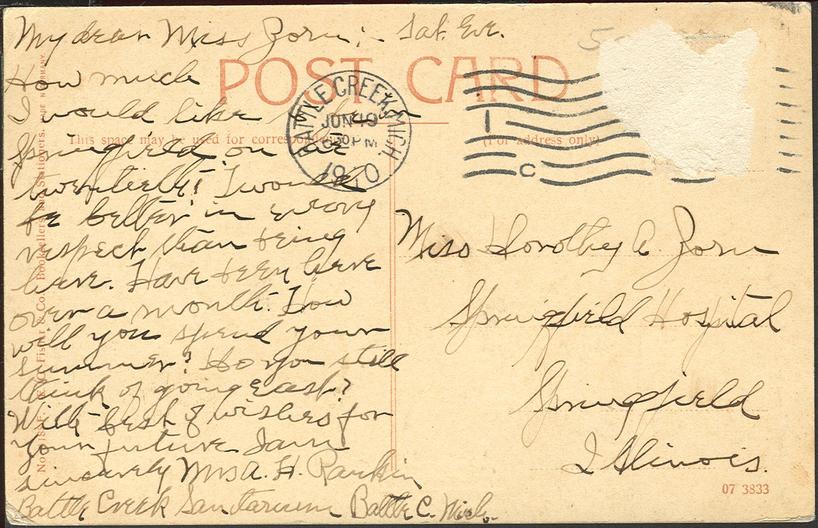 My dear Miss Zorn; - Sat. Eve.
How much
I would like
Springfield on the
twentieth! I would
be better in every
respect than being
here. Have been here
over a month. How
will you spend your
summer? Do you still
think of going east?
With best of wishes for
your future I am
sincerely Mrs A. H. Rankin
Battle Creek Sanitarium Battle C. Mich.
POST CARD
This space may be used for correspondence
(For address only)
BATTLE CREEK, MICH
JUN 19
PM
1910
C
Miss Dorothy A. Zorn
Springfield Hospital
Springfield
Illinois.
07 3833